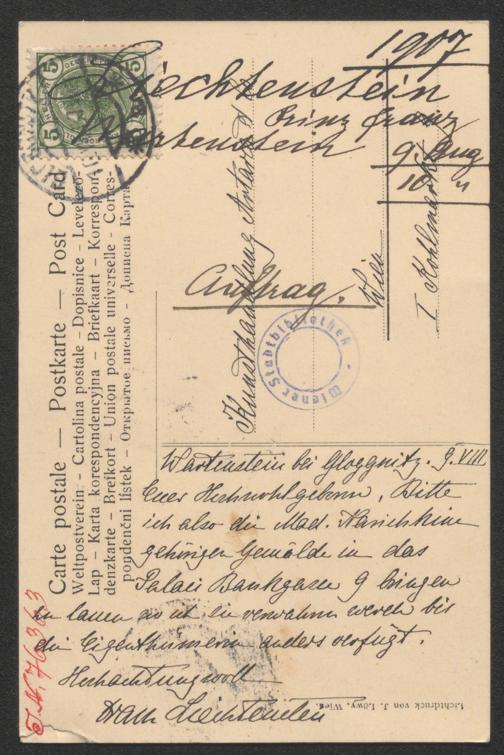 1907
Liechtenstein
Prinz Franz
Wartenstein
9 Aug
10 "
Auftrag.
Kunsthandlung Artaria
Wien
I Kohlmarkt
5 5
5 5
Carte postale — Postkarte — Post Card
Weltpostverein - Cartolina postale - Dopisnice - Levelező-
Lap - Karta korespondencyjna - Briefkaart - Korrespon-
denzkarte - Breikort - Union postale universelle - Corres-
pondenční listek - Открытое письмо - Дописна Карта
Wiener Stadtbibliothek
Wartenstein bei Gloggnitz. 9.VIII
Euer Hochwohlgeboren, Bitte
ich also die Mad. Narischkine
gehörigen Gemälde in das
Palais Bankgasse 9 bringen
zu lassen wo ich sie verwahren werde bis
die Eigenthümerin anders verfügt.
Hochachtungsvoll
Franz Liechtenstein
Lichtdruck von J. Löwy, Wien.
I.N. 76363